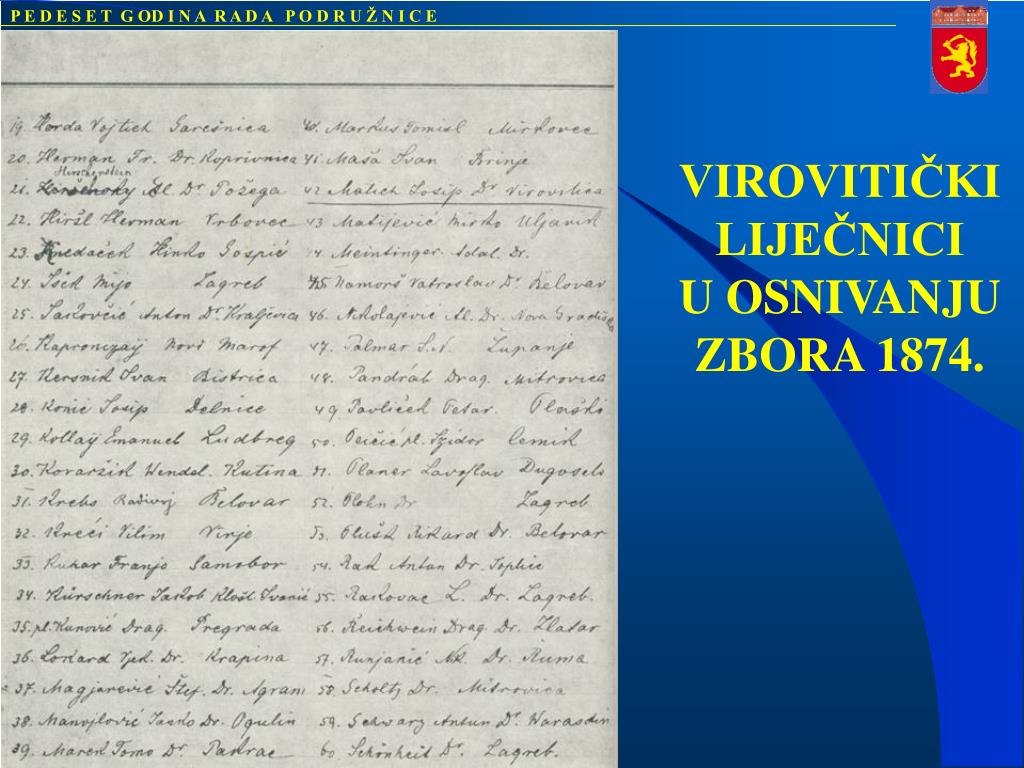 PEDESET GODINA RADA PODRUŽNICE
VIROVITIČKI
LIJEČNICI
U OSNIVANJU
ZBORA 1874.
19. Horda Vojtieh Garešnica
20. Herman Fr. Dr. Koprivnica
Hirschenstein
21. Al Dr Požega
22. Hiršl Herman Vrbovec
23. Knedaček Hinko Gospić
24. Išek Mijo Zagreb
25. Jakovčić Anton Dr. Kraljevica
26. Kapronczaÿ Novi Marof
27. Kersnik Ivan Bistrica
28. Konić Josip Delnice
29. Kollaÿ Emanuel Ludbreg
30. Kovaržik Wendel. Kutina
31. Krebs Belovar
32. Kreći Vilim Virje
33. Kuhar Franjo Samobor
34. Kürschner Jakob Klošt. Ivanić
35. pl. Kunović Drag. Pregrada
36. Lokard Dr. Krapina
37. Magjarević Štef. Dr. Agram
38. Manojlović Janko Dr. Ogulin
39. Marek Tomo Dr Pakrac
40. Markus Tomisl Mirkovec
41. Maša Ivan Brinje
42 Matich Josip Dr Virovitica
43 Matijević Mirko Uljanik
44. Meintinger Adal. Dr.
45 Namorš Vatroslav Dr. Belovar
46. Nikolajević Al. Dr. Nova Gradiška
47. Palmar Županje
48. Pandrák Drag. Mitrovica
49 Pavliček Petar. Plaški
50. Peičić pl. Szidor Cernik
51. Planer Lavoslav Dugoselo
52. Plohn Dr Zagreb
53. Plušk Rikard Dr. Belovar
54. Rak Antun Dr. Toplice
55. Rakovac L. Dr. Zagreb.
56. Reichwein Drag. Dr. Zlatar
57. Runjanić Nk. Dr. Ruma
58. Scholtz Dr. Mitrovica
59. Schwarz Antun Dr. Warasdin
60. Schönheit Dr. Zagreb.